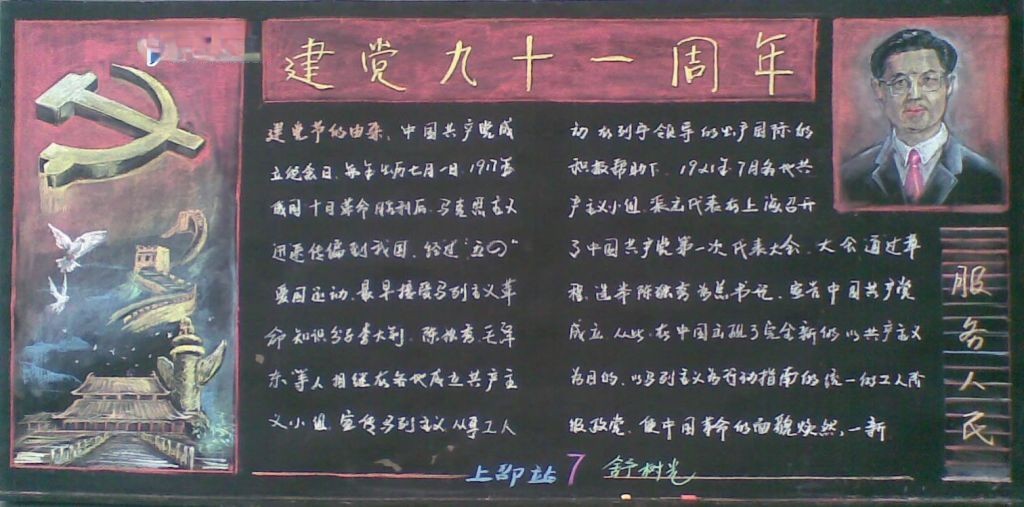 建党九十一周年
建党节的由来，中国共产党成
立纪念日，每年的七月一日，1917年
俄国十月革命胜利后，马克思主义
迅速传遍到我国，经过“五四”
爱国运动，最早接受马列主义革
命知识分子李大利，陈独秀，毛泽
东等人相继在各地成立共产主
义小组，宣传马列主义从事工人
初在列宁领导的共产国际的
积极帮助下，1921年7月各地共
产主义小组派出代表在上海召开
了中国共产党第一次代表大会，大会通过章
程，选举陈独秀为总书记，宣告中国共产党
成立，从此，在中国出现了完全新的，以共产主义
为目的，以马列主义为行动指南的统一的工人阶
级政党，使中国革命的面貌焕然，一新
服务人民
上邵站 7 舒树光